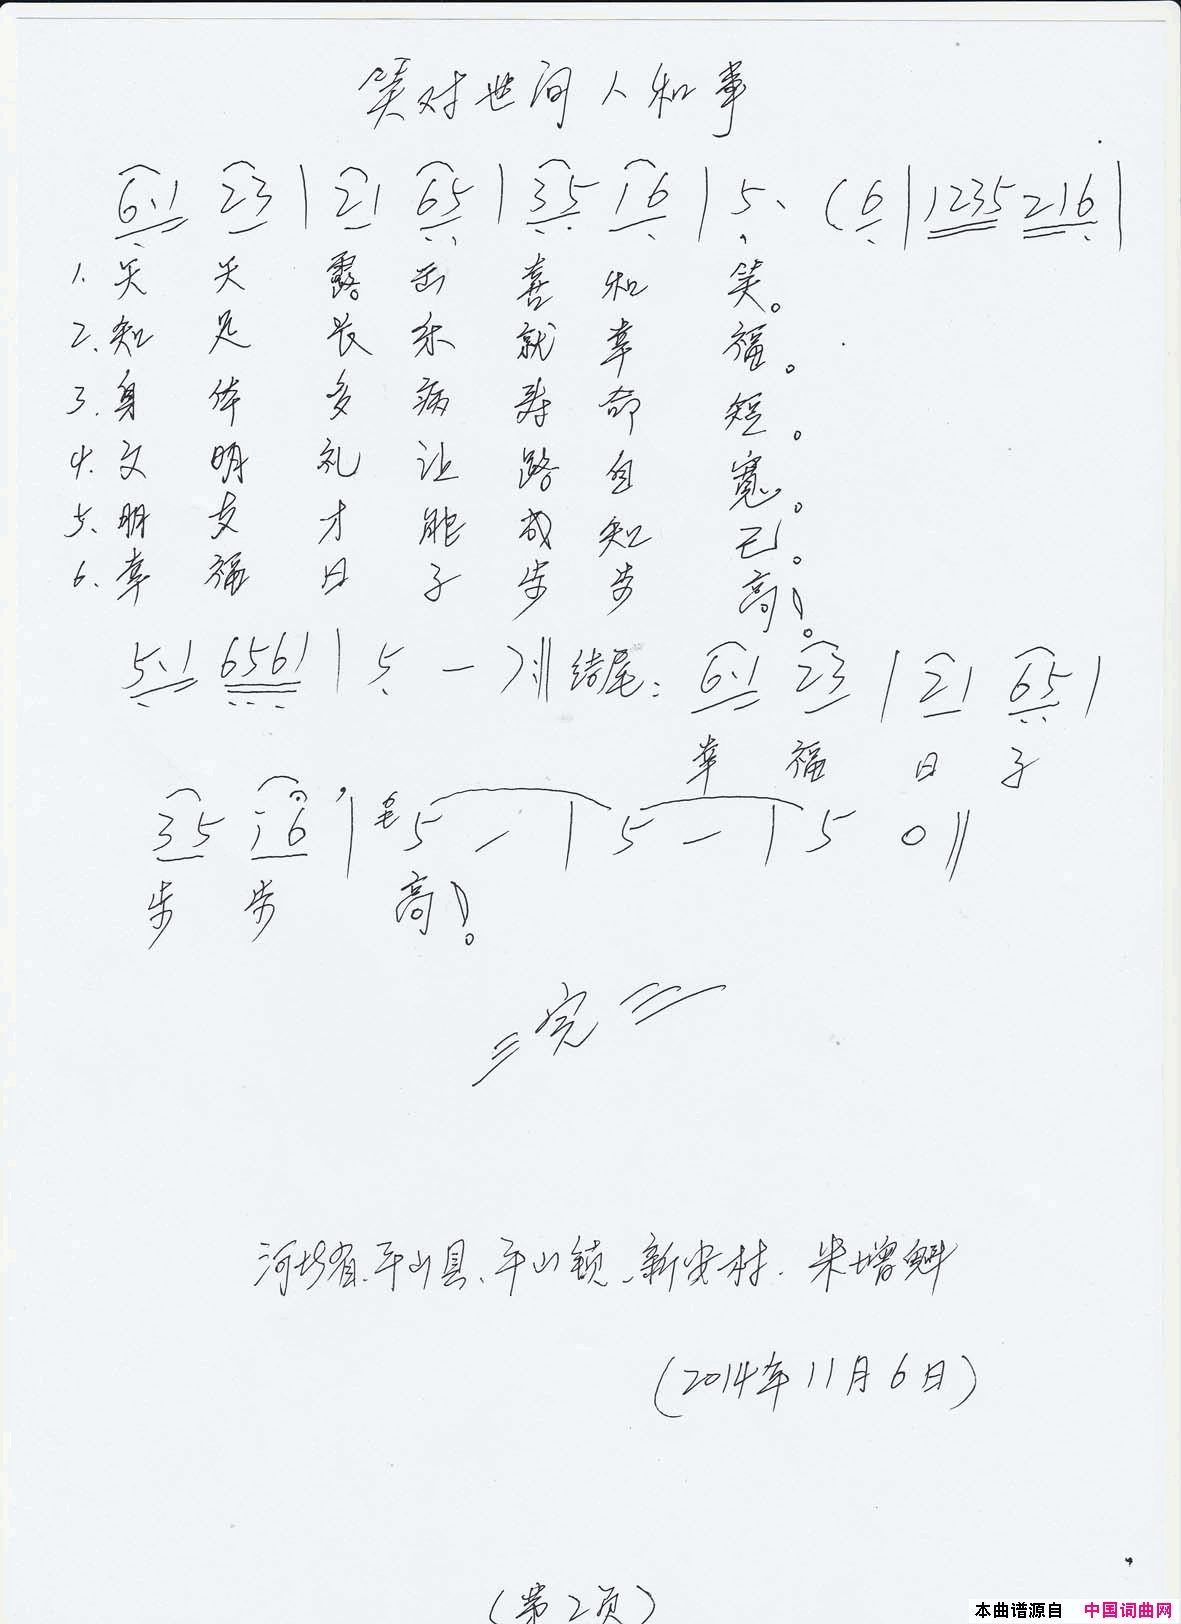 笑对世间人和事
6·1 23 | 21 65 | 35 16 | 5、 (6 | 1235 216 |
1. 天天露出喜和笑。
2. 知足长乐就幸福。
3. 身体多病寿命短。
4. 文明礼让路自宽。
5. 朋友才能成知己。
6. 幸福日子步步高!
5·1 6561 | 5 — :‖ 结尾: 6·1 23 | 21 65 |
幸福日子
35 i6 | 5 — | 5 — | 5 0 ‖
步步高!
完
河北省、平山县、平山镇、新安村. 朱增魁
(2014年11月6日)
(第2页)
本曲谱源自 中国词曲网